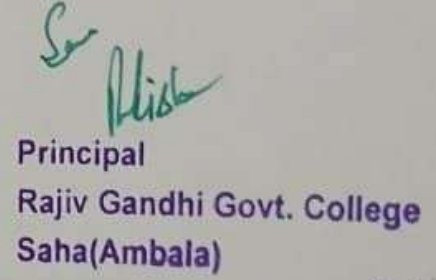 Principal
Rajiv Gandhi Govt. College
Saha(Ambala)